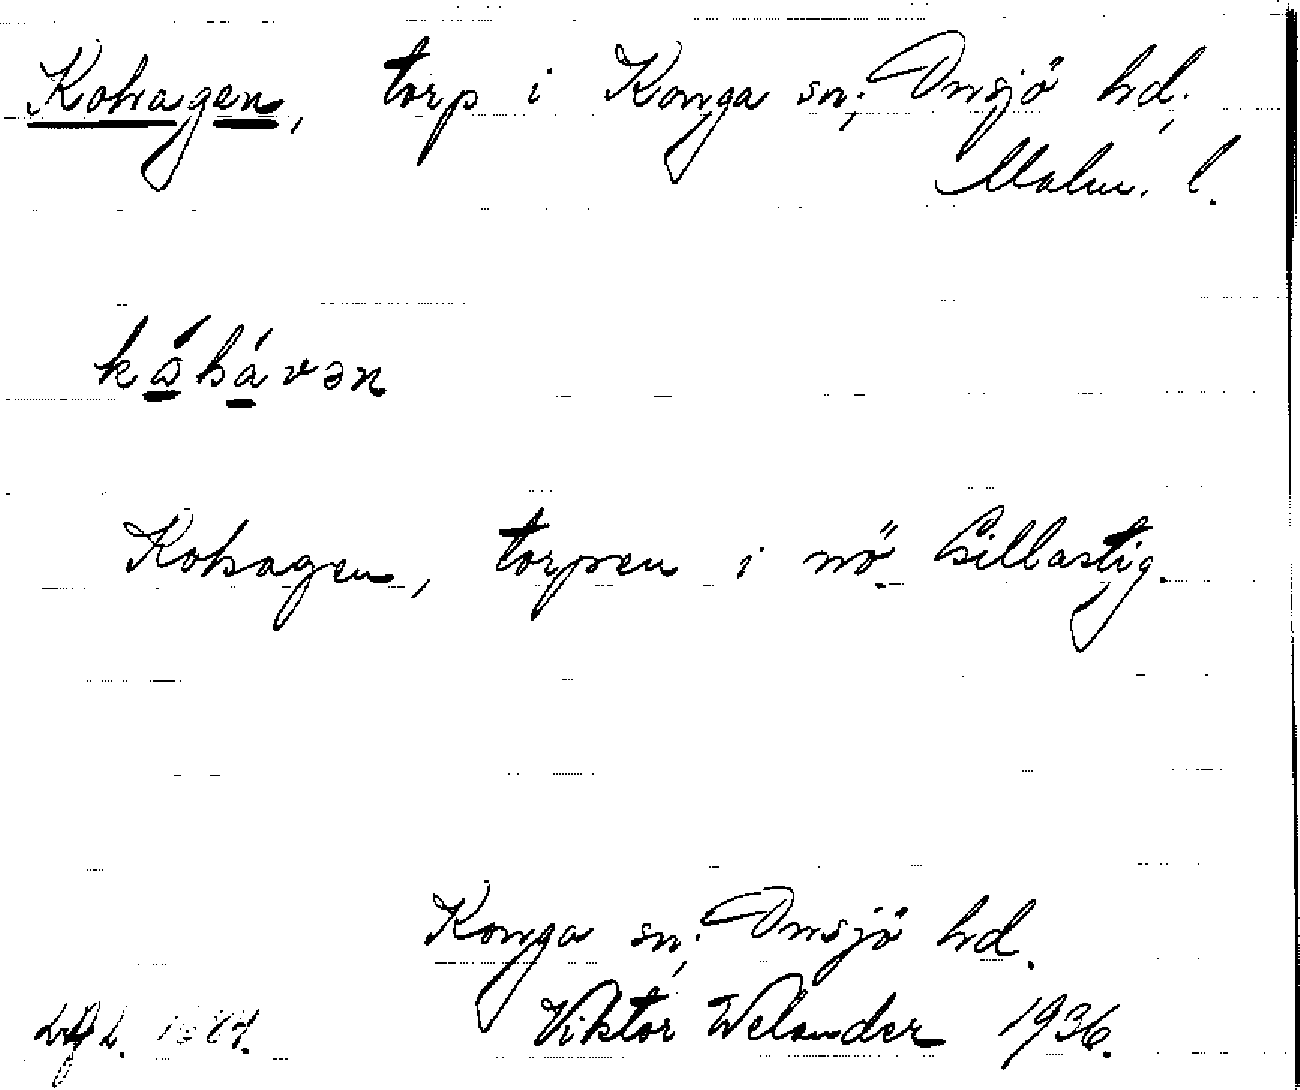 Kohagen, torp i Konga sn; Onsjö hd;
Malm. l.
kåhávən
Kohagen, torpen i nö Gillastig.
Konga sn; Onsjö hd.
Viktor Welander 1936.